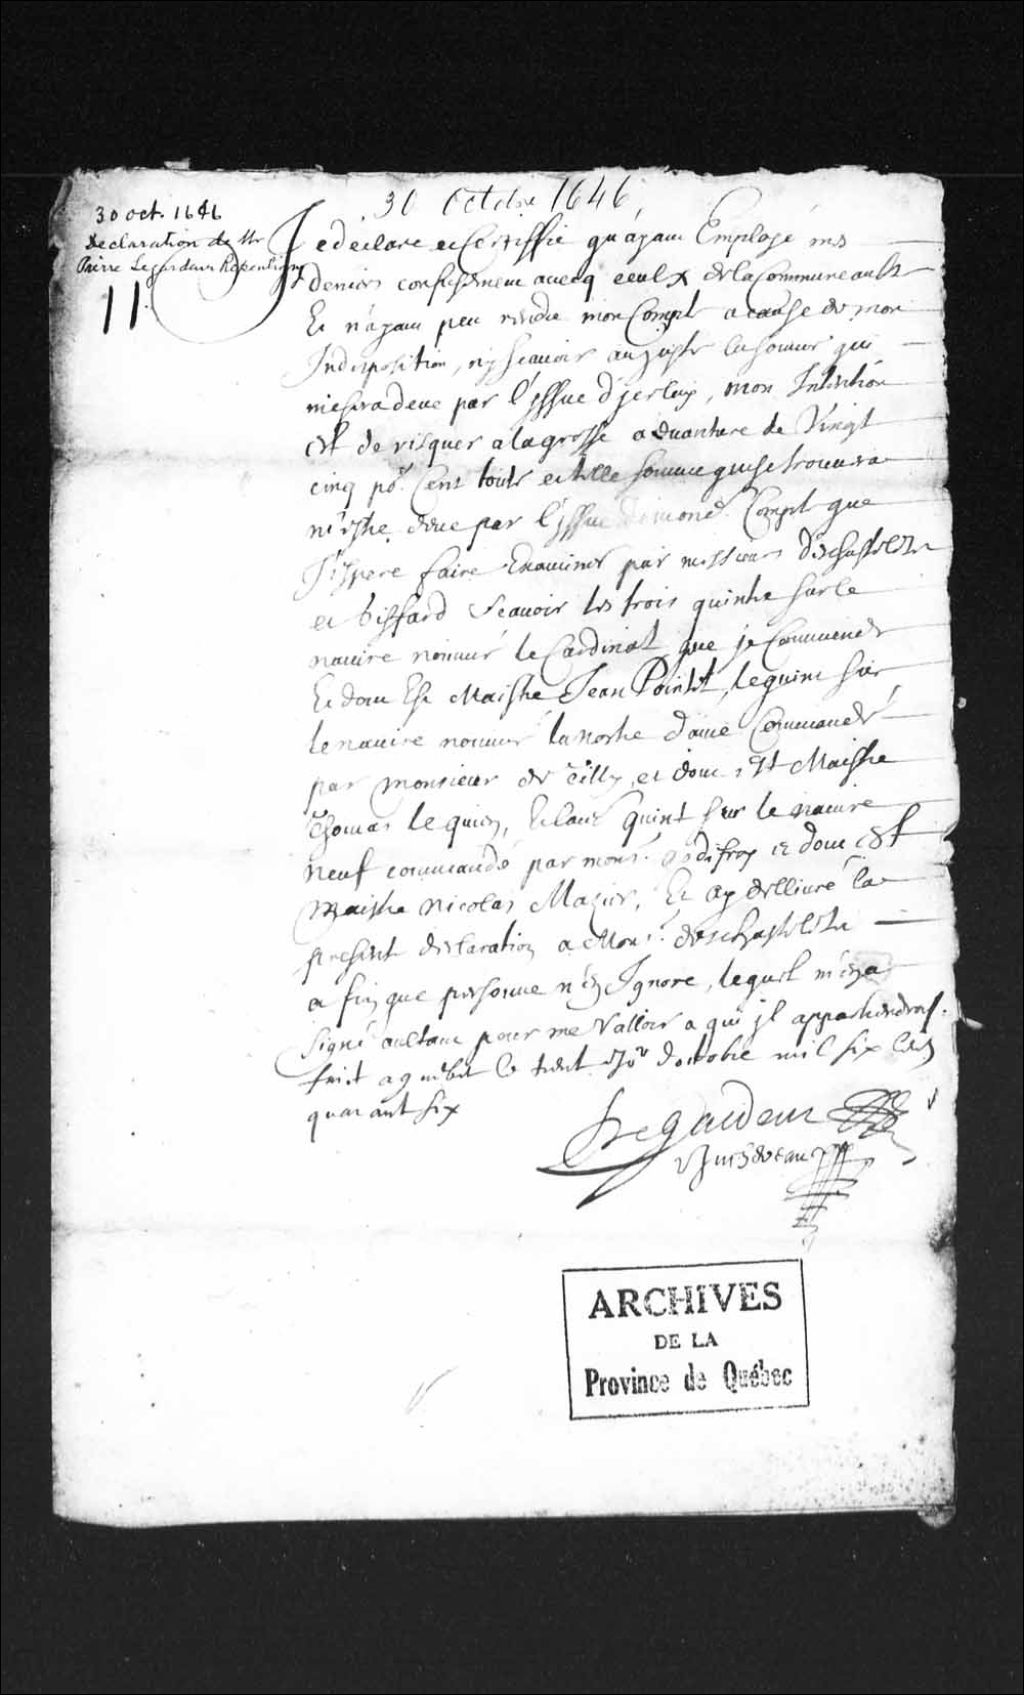 30 Octobre 1646
30 oct. 1646
Declaration de Mr
Pierre Legardeur Repentigny
11.
Je declare et Certiffie qu'ayant Employé mes
deniers confusement avecq ceulx de la Communeaulté
Et n'ayant peu rendre mon Compte a cause de mon
Indisposition, ny scavoir au juste la somme qui
me sera deue par l'yssue d'jcelluy, mon Intention
est de risquer a la grosse advanture de Vingt
cinq por. Cent toute et telle somme qui se trouvera
m'estre deue par l'yssue de mond. Compte que
J'espere faire Examiner par messieurs Deschastelets
et bissard Scavoir les trois quints sur le
navire nommé le Cardinal que je Commende
Et dont Est Maistre Jean Pointel, le quint sur
le navire nommé la nostre dame Commandé
par monsieur de Tilly, et dont est Maistre
Thomas le quien, Et lau. quint sur le navire
neuf commandé par monsr. godefroy et dont est
Maistre Nicolas Mazier, Et ay dellivré la
present declaration a Monsr. deschastelets
a fin que personne n'en Ignore, lequel m'en a
signé aultant pour me Valloir a qui jl appartiendra.
faict a quebec le trent. Jor d'octobre mil six cens
quarant six
Legardeur
ARCHIVES
DE LA
Province de Québec